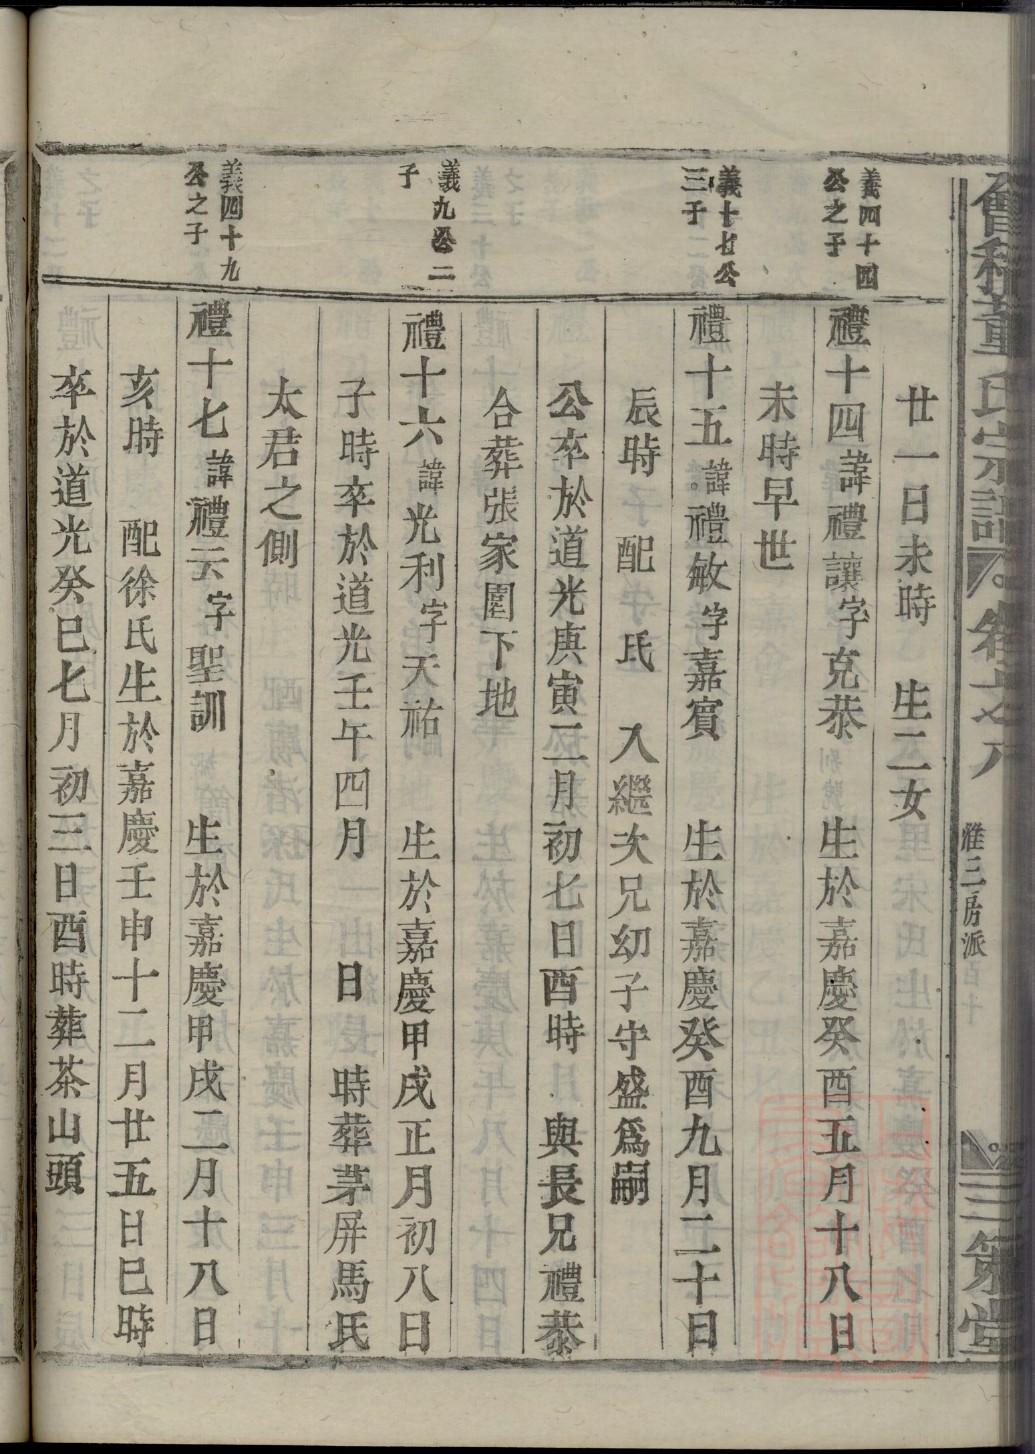 會稽董氏宗譜
雅三房派
三策堂
廿一日未時 生二女
義四十四
公之子
禮十四諱禮讓字克恭 生於嘉慶癸酉五月十八日
未時早世
義十七公
三子
禮十五諱禮敏字嘉賓 生於嘉慶癸酉九月二十日
辰時 配 氏 入繼次兄幼子守盛爲嗣
公卒於道光庚寅二月初七日酉時 與長兄禮恭
合葬張家園下地
義九公二
子
禮十六諱光利字天祐 生於嘉慶甲戌正月初八日
子時卒於道光壬午四月 日 時葬茅屏馬氏
太君之側
義四十九
公之子
禮十七諱禮云字聖訓 生於嘉慶甲戌二月十八日
亥時 配徐氏生於嘉慶壬申十二月廿五日巳時
卒於道光癸巳七月初三日酉時葬茶山頭